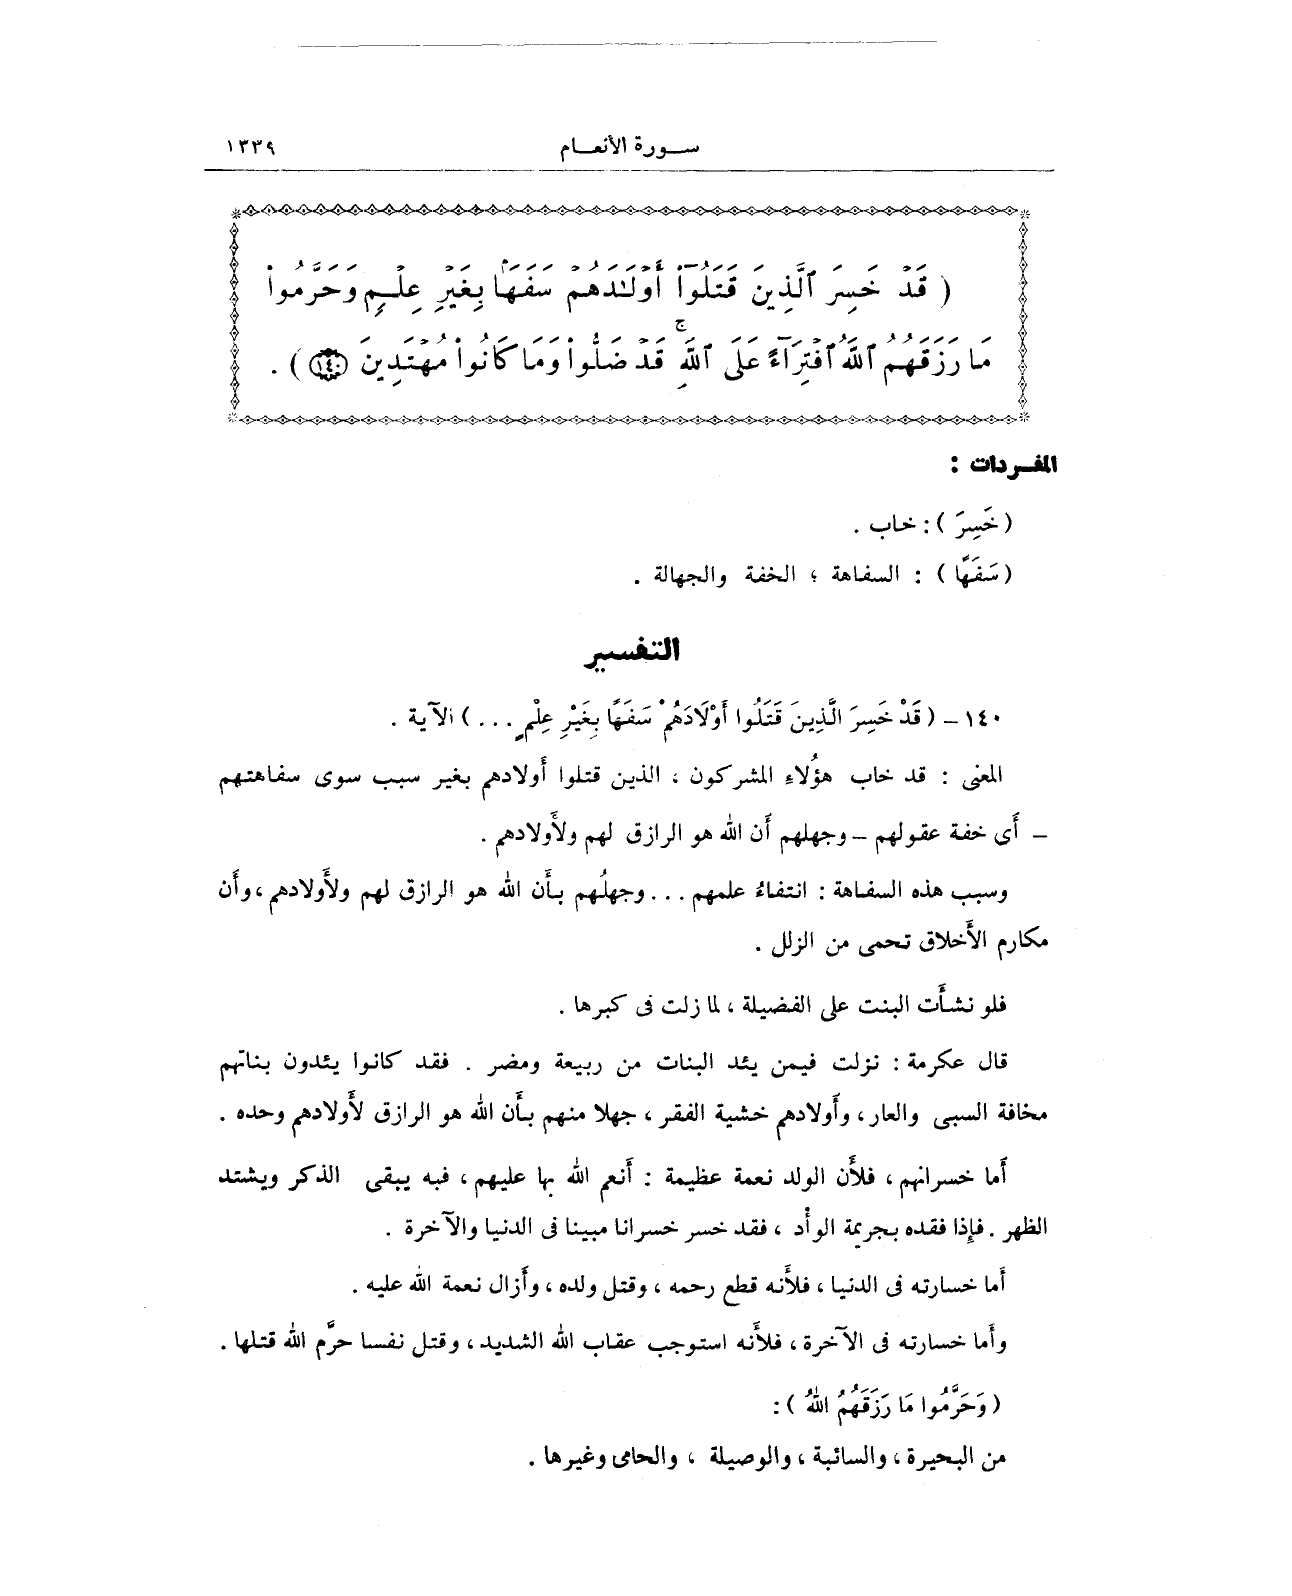 ســورة الأنعــام ١٣٣٩
( قَدۡ خَسِرَ ٱلَّذِينَ قَتَلُوٓاْ أَوۡلَٰدَهُمۡ سَفَهَۢا بِغَيۡرِ عِلۡمٖ وَحَرَّمُواْ
مَا رَزَقَهُمُ ٱللَّهُ ٱفۡتِرَآءً عَلَى ٱللَّهِۚ قَدۡ ضَلُّواْ وَمَا كَانُواْ مُهۡتَدِينَ ١٤٠ ) .
المفـردات :
( خَسِرَ ) : خاب .
( سَفَهًا ) : السفاهة ؛ الخفة والجهالة .
التفسير
١٤٠ – ( قَدْ خَسِرَ الَّذِينَ قَتَلُوا أَوْلَادَهُمْ سَفَهًا بِغَيْرِ عِلْمٍ ... ) الآية .
المعنى : قد خاب هؤُلاءِ المشركون ، الذين قتلوا أَولادهم بغير سبب سوى سفاهتهم
– أَى خفة عقولهم – وجهلهم أَن الله هو الرازق لهم ولأَولادهم .
وسبب هذه السفاهة : انتفاءُ علمهم ... وجهلُهم بأَن الله هو الرازق لهم ولأَولادهم ، وأَن
مكارم الأَخلاق تحمى من الزلل .
فلو نشأَت البنت على الفضيلة ، لما زلت فى كبرها .
قال عكرمة : نزلت فيمن يئد البنات من ربيعة ومضر . فقد كانوا يئدون بناتهم
مخافة السبى والعار ، وأَولادهم خشية الفقر ، جهلا منهم بأَن الله هو الرازق لأَولادهم وحده .
أَما خسرانهم ، فلأَن الولد نعمة عظيمة : أَنعم الله بها عليهم ، فبه يبقى الذكر ويشتد
الظهر . فإِذا فقده بجريمة الوأْد ، فقد خسر خسرانا مبينا فى الدنيا والآخرة .
أَما خسارته فى الدنيا ، فلأَنه قطع رحمه ، وقتل ولده ، وأَزال نعمة الله عليه .
وأَما خسارته فى الآخرة ، فلأَنه استوجب عقاب الله الشديد ، وقتل نفسا حرَّم الله قتلها .
( وَحَرَّمُوا مَا رَزَقَهُمُ اللهُ ) :
من البحيرة ، والسائبة ، والوصيلة ، والحامى وغيرها .